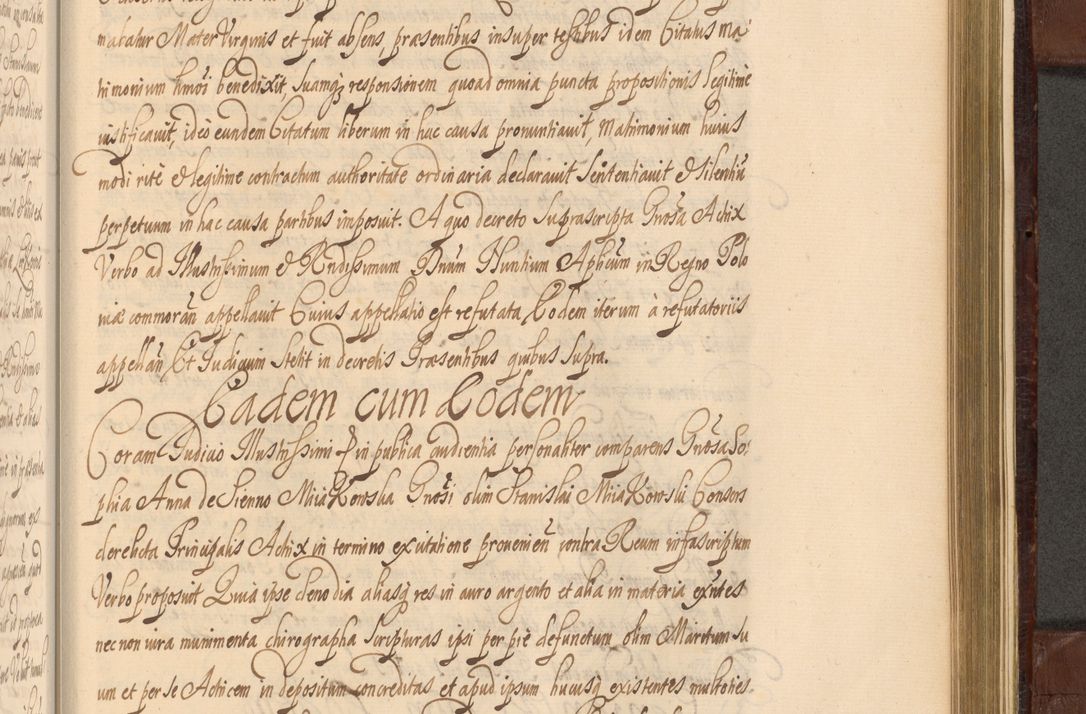 maratur Mater Virginis et fuit absens præsentibus insuper testibus idem Citatus Ma
trimonium hmoi benedixit, suamq responsionem quoad omnia puncta propositionis legitime
iustificauit, ideo eundem Citatum liberum in hac causa pronuntiauit, Matrimonium huius
modi rite et legitime contractum authoritate ordinaria declarauit sententiauit et silentiu
perpetuum in hac causa partibus imposuit. A quo decreto suprascripta Gnosa Actrix
Verbo ad Illustrissimum et Rndissimum Dnum Nuntium Aplicum in Regno Polo
niæ commoran appellauit Cuius appellatio est refutata Eodem iterum à refutatoriis
appellan, Et Judicium stetit in decretis Præsentibus quibus supra.
Eadem cum Eodem
Coram Judicio Illustrissimi in publica audientia personaliter comparens Gnosa So
phia Anna de Sienno Miiakowska Gnosi olim Stanislai Miiakowski Consors
derelicta Principalis Actrix in termino ex citatione provenien contra Reum infrascriptum
Verbo proposuit Quia ipse clenodia aliasq res in auro argento et alia in materia exntes
nec non iura munimenta chirographa scripturas ipsi per pie defunctum olim Maritum su
um et per se Actricem in depositum concreditas et apud ipsum hucusq existentes multoties